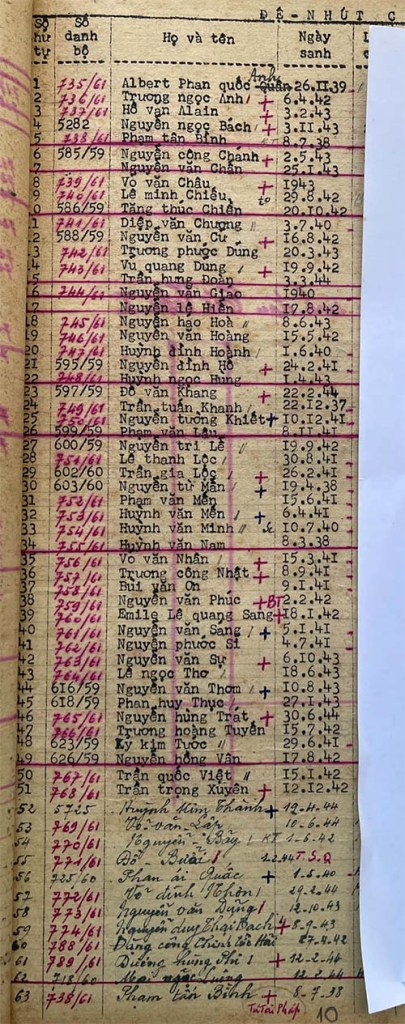 ĐỆ-NHỨT C
Số thứ tự Số danh bộ Họ và tên Ngày sanh
1 735/61 Albert Phan quốc Quân Anh 26.II.39
2 736/61 Trương ngọc Anh + 6.4.42
3 737/61 Hồ văn Alain + 3.2.43
4 5282 Nguyễn ngọc Bách + 3.II.43
5 738/61 Phạm tấn Bỉnh 8.7.38
6 585/59 Nguyễn công Chánh + 2.5.43
7 Nguyễn văn Chấn 25.I.43
8 739/61 Võ văn Châu + I943
9 740/61 Lê minh Chiểu 29.8.42
10 586/59 Tăng thúc Chiến 20.I0.42
11 741/61 Diệp văn Chương 3.7.40
12 588/59 Nguyễn văn Cư + I6.8.42
13 742/61 Trương phước Dũng 20.3.43
14 743/61 Vũ quang Dung + I9.9.42
15 Trần hưng Đoàn 3.3.44
16 744/61 Nguyễn văn Giao I940
17 Nguyễn lệ Hiền I7.8.42
18 745/61 Nguyễn hạo Hoà 8.6.43
19 746/61 Nguyễn văn Hoàng I5.5.42
20 747/61 Huỳnh đình Hoành I.6.40
21 595/59 Nguyễn đình Hồ + 24.2.4I
22 748/61 Huỳnh ngọc Hưng I.4.43
23 597/59 Đỗ văn Khang + 22.2.44
24 749/61 Trần tuấn Khanh + 22.I2.37
25 750/61 Nguyễn tường Khiết + I0.I2.4I
26 599/59 Phạm văn Lậu 8.II.4I
27 600/59 Nguyễn trí Lễ I9.9.42
28 751/61 Lê thanh Lộc 30.8.4I
29 602/60 Trần gia Lộc + 26.2.4I
30 603/60 Nguyễn tử Mẫn + I9.4.38
31 752/61 Phạm văn Mến I5.6.4I
32 753/61 Huỳnh văn Mến + 6.4.4I
33 754/61 Huỳnh văn Minh I0.7.40
34 755/61 Huỳnh văn Nam 8.3.38
35 756/61 Võ văn Nhân + I5.3.4I
36 757/61 Trương công Nhật + 8.9.4I
37 758/61 Bùi văn Ơn 9.I.4I
38 759/61 Nguyễn văn Phúc +BT 2.2.42
39 760/61 Emile Lê quang Sang + I8.I.42
40 761/61 Nguyễn văn Sang + 5.I.4I
41 762/61 Nguyễn phước Sĩ 4.7.4I
42 763/61 Nguyễn văn Sự + 6.I0.43
43 764/61 Lê ngọc Thơ I8.6.43
44 616/59 Nguyễn văn Thơm + I0.8.43
45 618/59 Phan huy Thục 27.I.43
46 765/61 Nguyễn hùng Trát + 30.6.44
47 766/61 Trương hoàng Tuyên I5.7.42
48 623/59 Ky kim Tước 29.6.4I
49 626/59 Nguyễn hồng Vân I7.8.42
50 767/61 Trần quốc Việt I5.I.42
51 768/61 Trần trọng Xuyên + I2.I2.42
52 5725 Huỳnh Kim Thành + 19-4-44
53 769/61 Võ văn Lập 10-6-44
54 770/61 Nguyễn Bảy 1-6-42
55 771/61 Đỗ Bưởi T.S.Q
56 725/60 Phan ái Quốc + 1-5-40
57 772/61 Võ đình Nhơn 29-2-44
58 773/61 Nguyễn văn Dũng 12-10-43
59 774/61 Nguyễn duy Thái Bạch + 8-9-43
60 788/61 Đặng công Chinh 27-4-42
61 789/61 Dương hùng Phi + 12-2-46
62 718/60 Mai ngọc
63 738/61 Phạm tấn Bỉnh + 8-7-38
Tú Tài Pháp 10